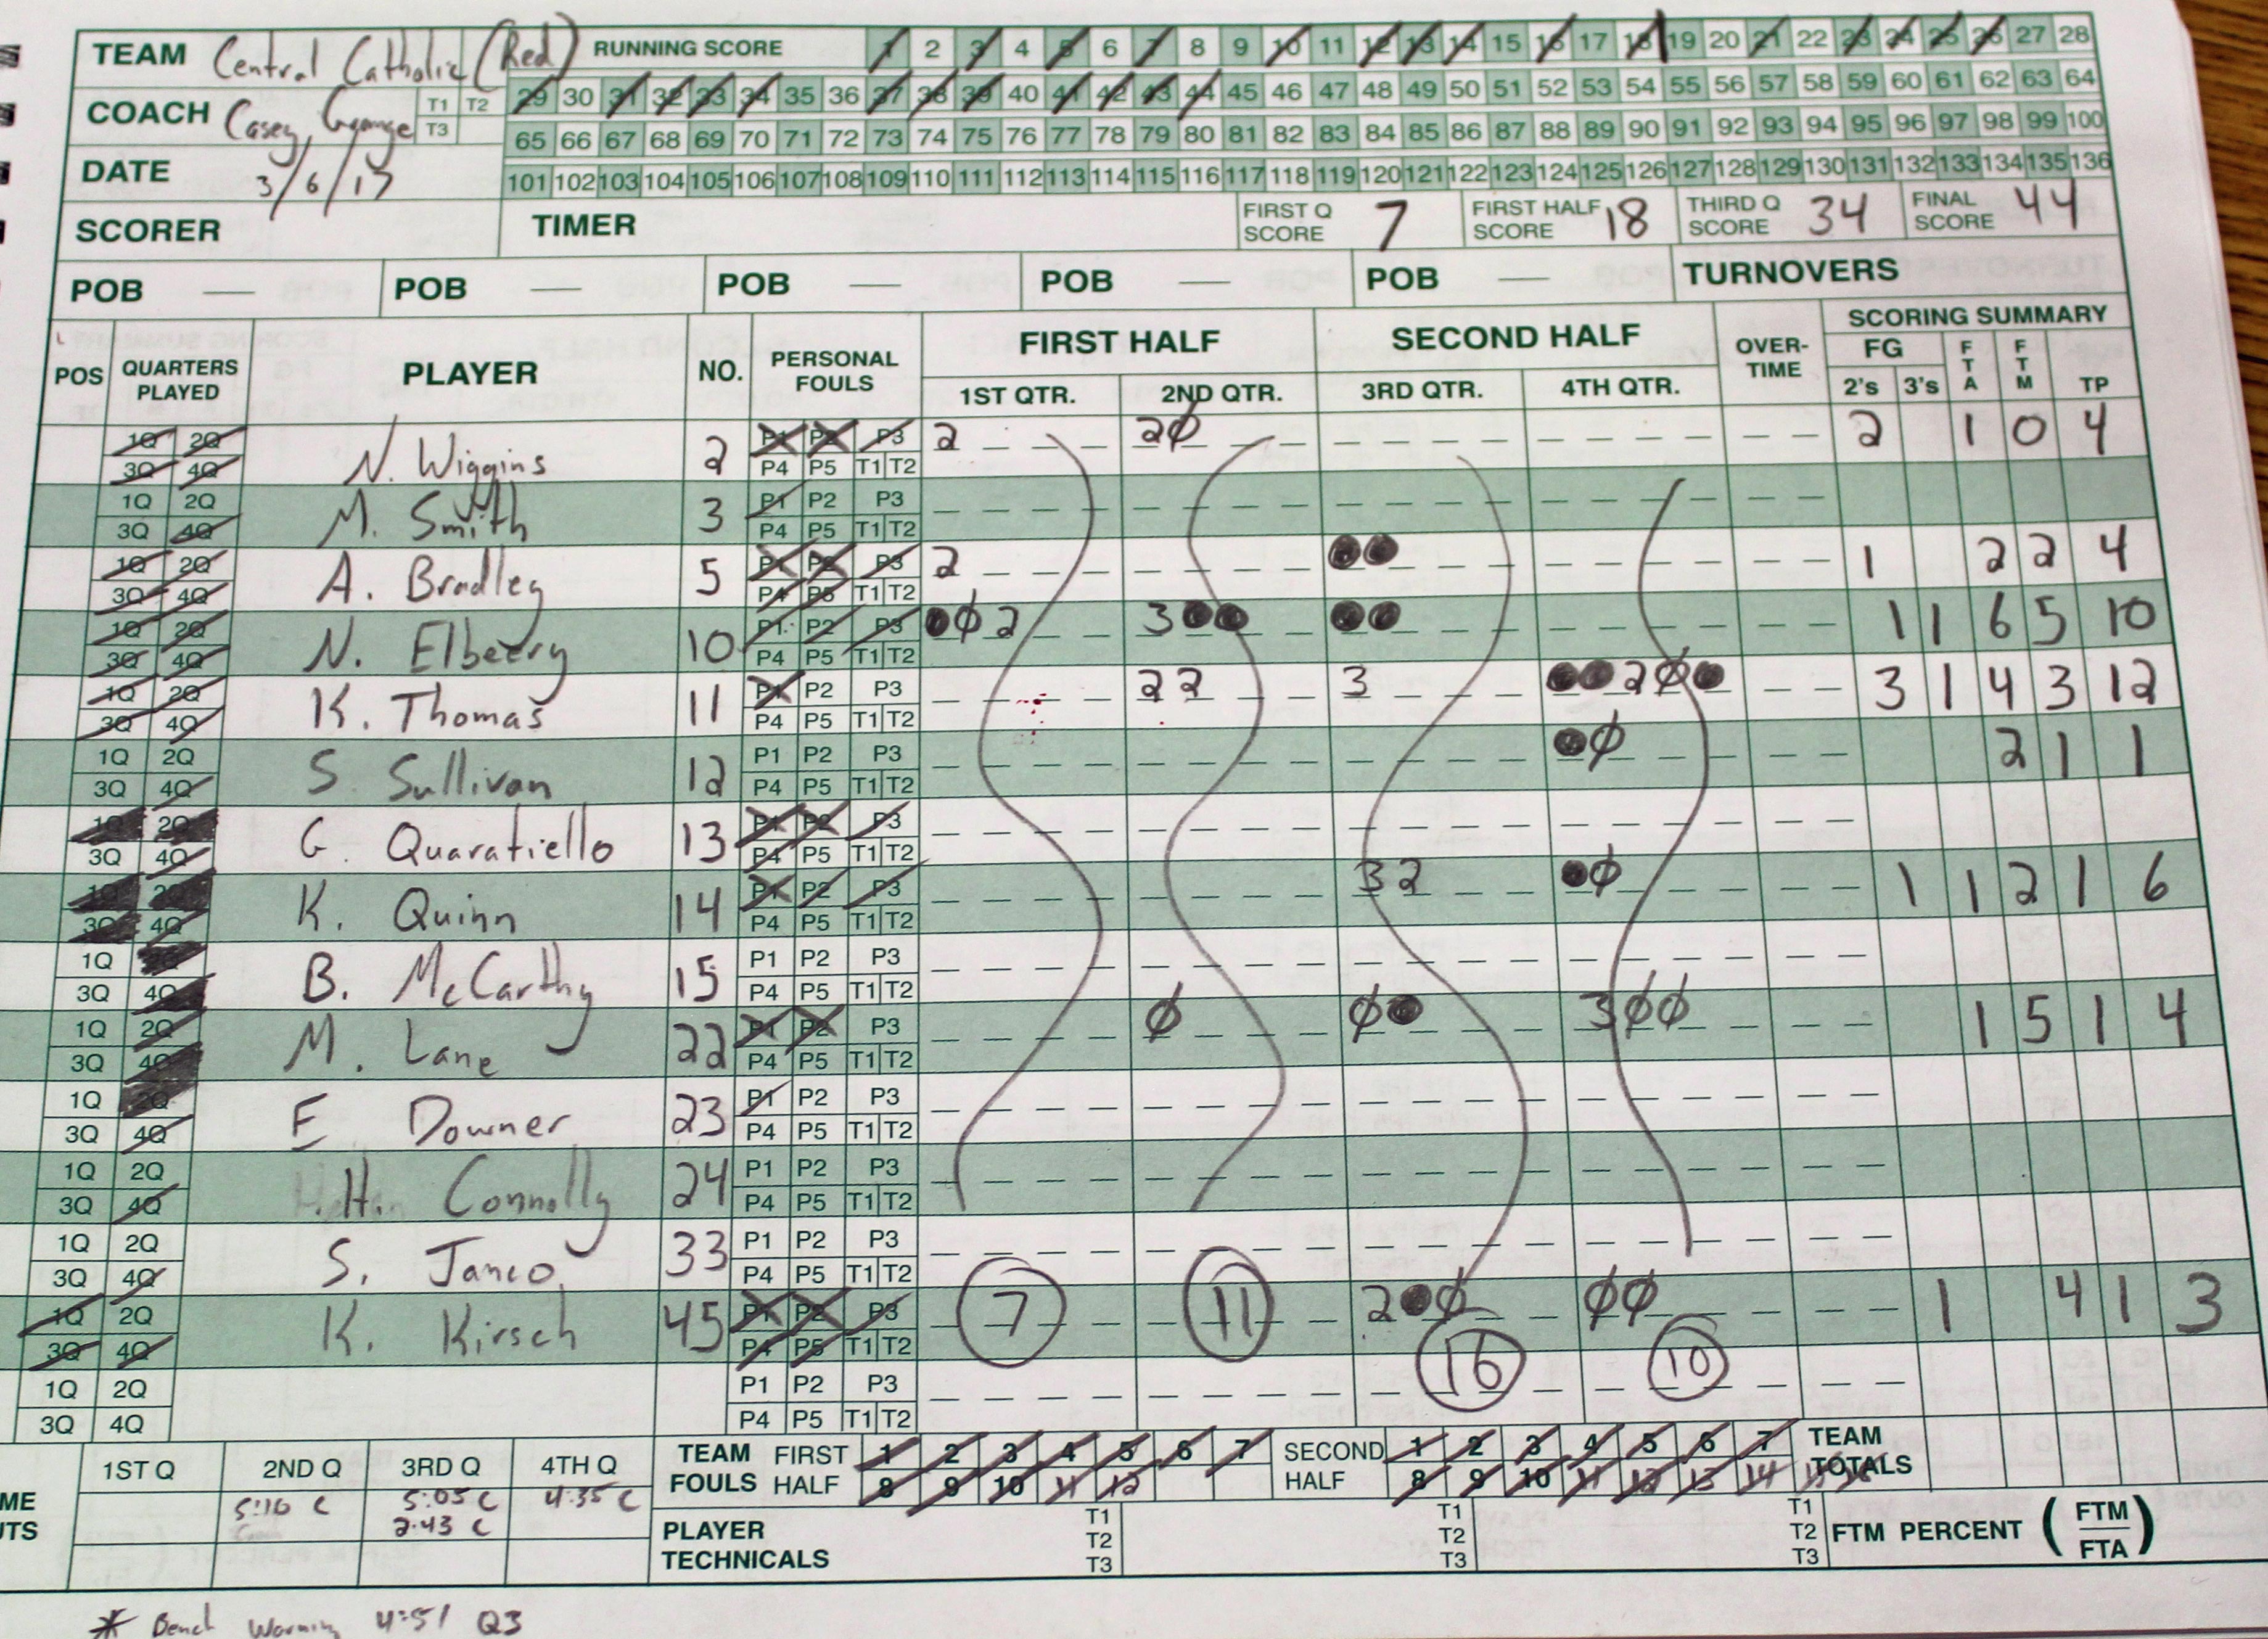 TEAM Central Catholic (Red) RUNNING SCORE 1 2 3 4 5 6 7 8 9 10 11 12 13 14 15 16 17 18 19 20 21 22 23 24 25 26 27 28
29 30 31 32 33 34 35 36 37 38 39 40 41 42 43 44 45 46 47 48 49 50 51 52 53 54 55 56 57 58 59 60 61 62 63 64
COACH Casey, George T1 T2 T3
65 66 67 68 69 70 71 72 73 74 75 76 77 78 79 80 81 82 83 84 85 86 87 88 89 90 91 92 93 94 95 96 97 98 99 100
DATE 3/6/17
101 102 103 104 105 106 107 108 109 110 111 112 113 114 115 116 117 118 119 120 121 122 123 124 125 126 127 128 129 130 131 132 133 134 135 136
SCORER TIMER FIRST Q SCORE 7 FIRST HALF SCORE 18 THIRD Q SCORE 34 FINAL SCORE 44
POB — POB — POB — POB — POB — TURNOVERS
POS QUARTERS PLAYED PLAYER NO. PERSONAL FOULS FIRST HALF SECOND HALF OVER-TIME SCORING SUMMARY
1ST QTR. 2ND QTR. 3RD QTR. 4TH QTR. FG 2's 3's FTA FTM TP
1Q 2Q P1 P2 P3 2 2Ø 2 1 0 4
3Q 4Q N. Wiggins 2 P4 P5 T1 T2
1Q 2Q P1 P2 P3
3Q 4Q M. Smith 3 P4 P5 T1 T2
1Q 2Q P1 P2 P3 2 ●● 1 2 2 4
3Q 4Q A. Bradley 5 P4 P5 T1 T2
1Q 2Q P1 P2 P3 ●Ø2 3●● ●● 1 1 6 5 10
3Q 4Q N. Elbeery 10 P4 P5 T1 T2
1Q 2Q P1 P2 P3 22 3 ●●2Ø● 3 1 4 3 12
3Q 4Q K. Thomas 11 P4 P5 T1 T2
1Q 2Q P1 P2 P3 ●Ø 2 1 1
3Q 4Q S. Sullivan 12 P4 P5 T1 T2
1Q 2Q P1 P2 P3
3Q 4Q G. Quaratiello 13 P4 P5 T1 T2
1Q 2Q P1 P2 P3 32 ●Ø 1 1 2 1 6
3Q 4Q K. Quinn 14 P4 P5 T1 T2
1Q 2Q P1 P2 P3
3Q 4Q B. McCarthy 15 P4 P5 T1 T2
1Q 2Q P1 P2 P3 Ø Ø● 3ØØ 1 5 1 4
3Q 4Q M. Lane 22 P4 P5 T1 T2
1Q 2Q P1 P2 P3
3Q 4Q E Downer 23 P4 P5 T1 T2
1Q 2Q P1 P2 P3
3Q 4Q Connolly 24 P4 P5 T1 T2
1Q 2Q P1 P2 P3
3Q 4Q S. Janco 33 P4 P5 T1 T2
1Q 2Q P1 P2 P3 7 11 2●Ø ØØ 1 4 1 3
3Q 4Q K. Kirsch 45 P4 P5 T1 T2 16 10
1Q 2Q P1 P2 P3
3Q 4Q P4 P5 T1 T2
1ST Q 2ND Q 3RD Q 4TH Q TEAM FOULS FIRST HALF 1 2 3 4 5 6 7 SECOND HALF 1 2 3 4 5 6 7 TEAM TOTALS
8 9 10 11 12 8 9 10 11 12 13 14 15 16
ME 5:10 C 5:05 C 4:35 C
UTS 2:43 C PLAYER TECHNICALS T1 T2 T3 T1 T2 T3 T1 T2 T3 FTM PERCENT (FTM/FTA)
* Bench Warning 4:51 Q3